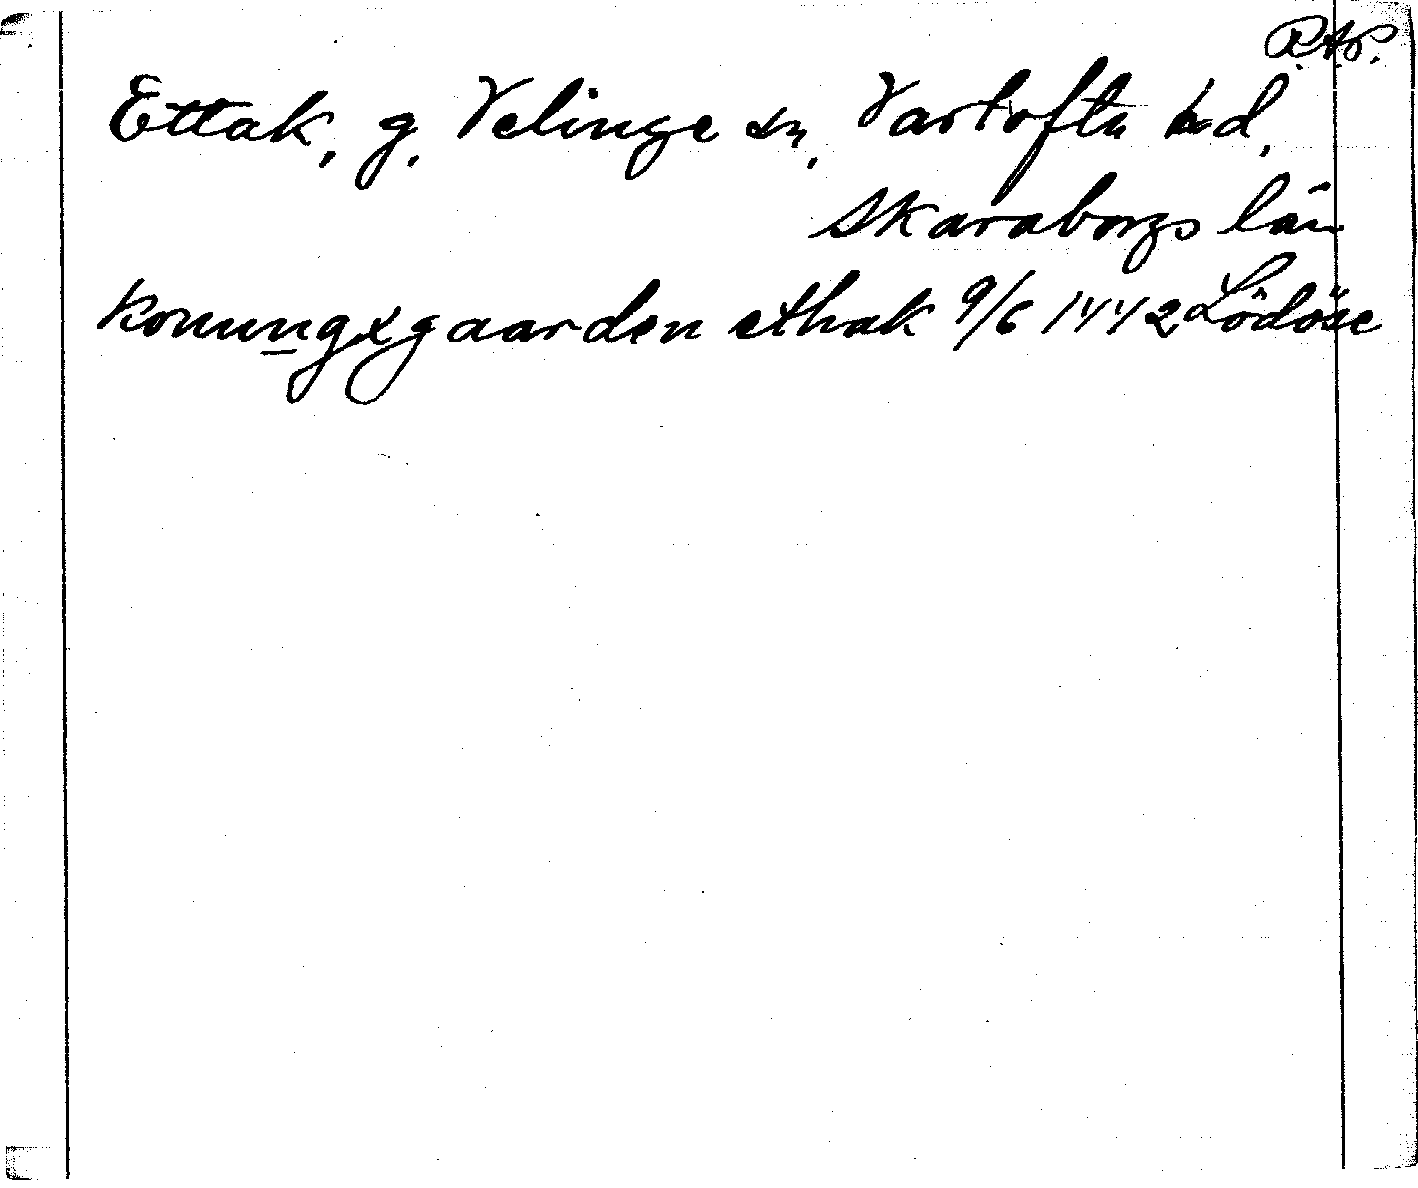 R.A.P.
Ettak, g. Velinge sn, Vartofta hd,
Skaraborgs län
konungxgaarden ethak 9/6 1442 Lödöse